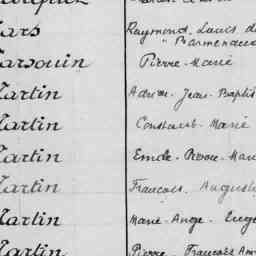 ars Raymond. Louis de
arsouin Pierre-Marie
Martin Adrien-Jean-Baptis
Martin Constant-Marie
Martin Emile-Pierre-Mar
Martin François. August
Martin Marie-Ange-Euge
Martin Pierre-François Am